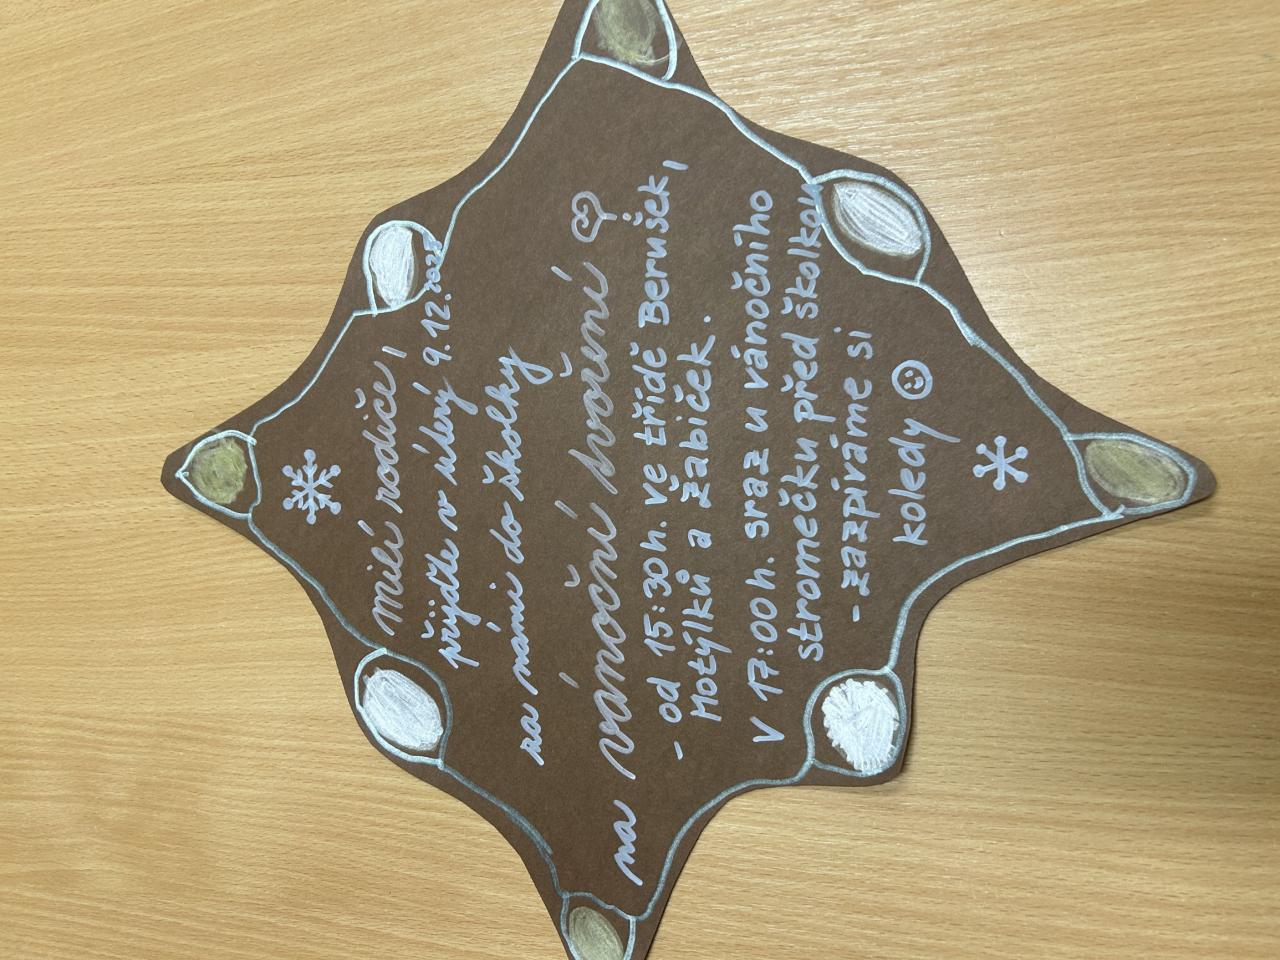 milí rodiče,
přijďte v úterý 9.12.2025
za námi do školky
na vánoční tvoření
- od 15:30h. ve třídě Berušek,
Motýlků a Žabiček.
V 17:00h. sraz u vánočního
stromečku před školkou
- zazpíváme si
koledy